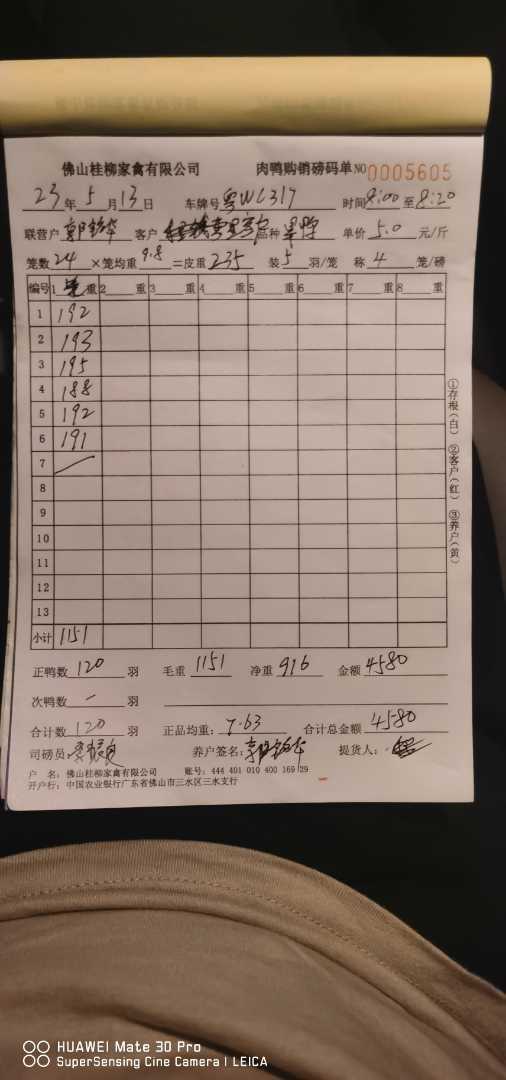 佛山桂柳家禽有限公司 肉鸭购销磅码单 NO 0005605
23 年 5 月 13 日 车牌号 粤WC317 时间 8:00 至 8:20
联营户 客户 品种 单价 5.0 元/斤
笼数 24 ×笼均重 9.8 =皮重 235 装 5 羽/笼 称 4 笼/磅
编号 1 重 2 重 3 重 4 重 5 重 6 重 7 重 8 重
1 192
2 193
3 195
4 188
5 192
6 191
7
8
9
10
11
12
13
小计 1151
①存根(白) ②客户(红) ③养户(黄)
正鸭数 120 羽 毛重 1151 净重 916 金额 4580
次鸭数 一 羽
合计数 120 羽 正品均重: 7.63 合计总金额 4580
司磅员: 养户签名: 提货人:
户 名: 佛山桂柳家禽有限公司 账号: 444 401 010 400 169 29
开户行: 中国农业银行广东省佛山市三水区三水支行
HUAWEI Mate 30 Pro
SuperSensing Cine Camera | LEICA